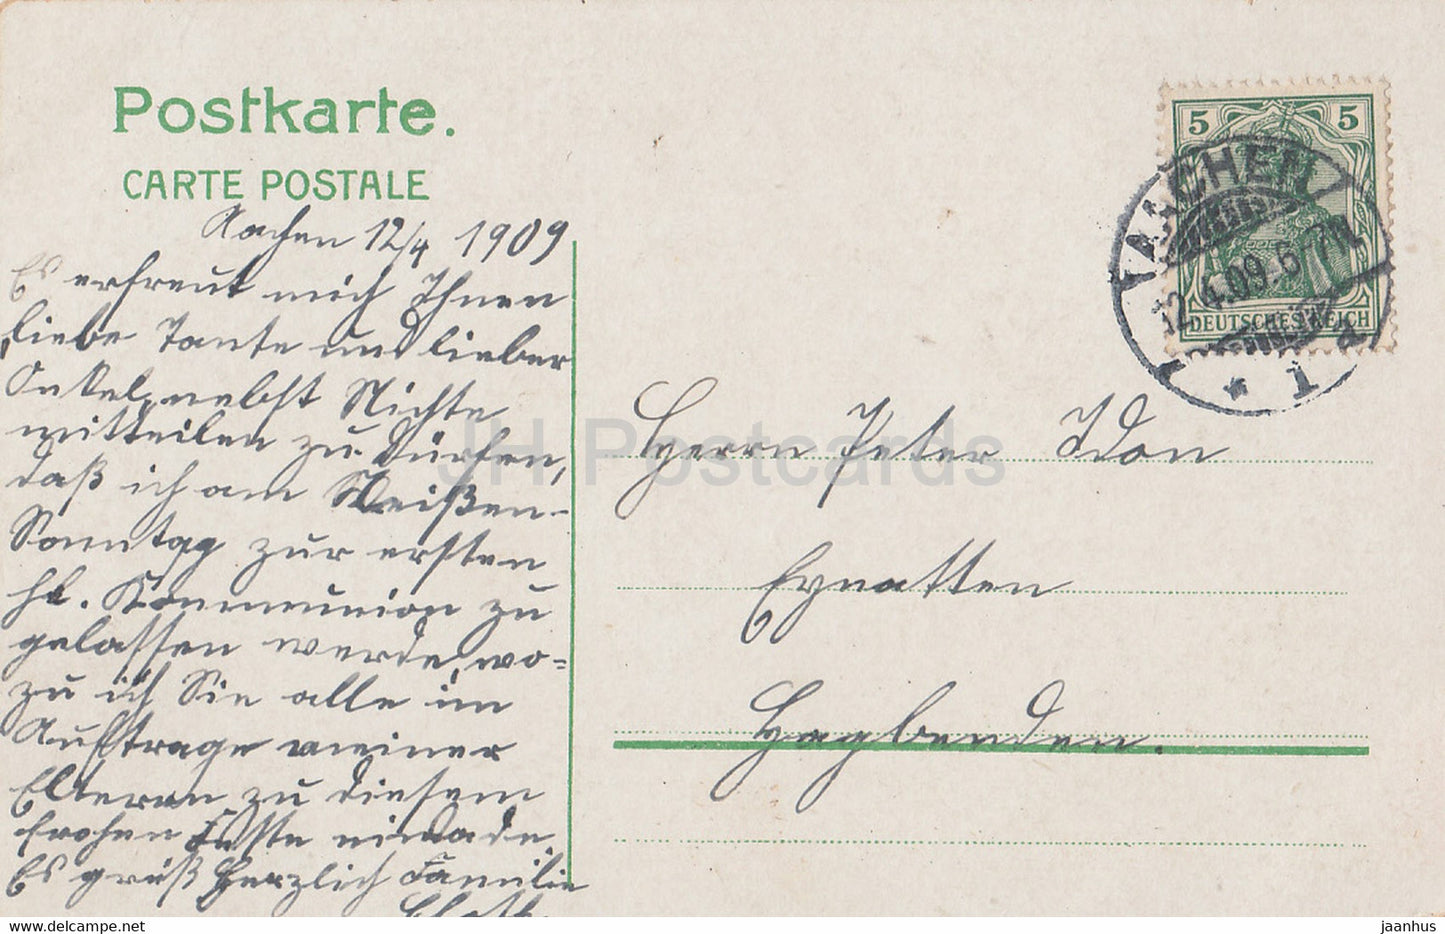 Postkarte.
CARTE POSTALE
Aachen 12/4 1909
Es erfreut mich Ihnen
liebe Tante und lieber
Onkel, nebst Nichte
mitteilen zu dürfen,
daß ich am Weißen-
Sonntag zur ersten
hl. Kommunion zu
gelassen werde, wo=
zu ich Sie alle im
Auftrage meiner
Elteren zu diesem
frohen Feste einlade.
Es grüß Herzlich Familie
5 5
AACHEN
12.4.09.6-7N
* 1 d
DEUTSCHES REICH
Herrn Peter
Eynatten
JH Postcards
www.hippostcard.com
jaanhus